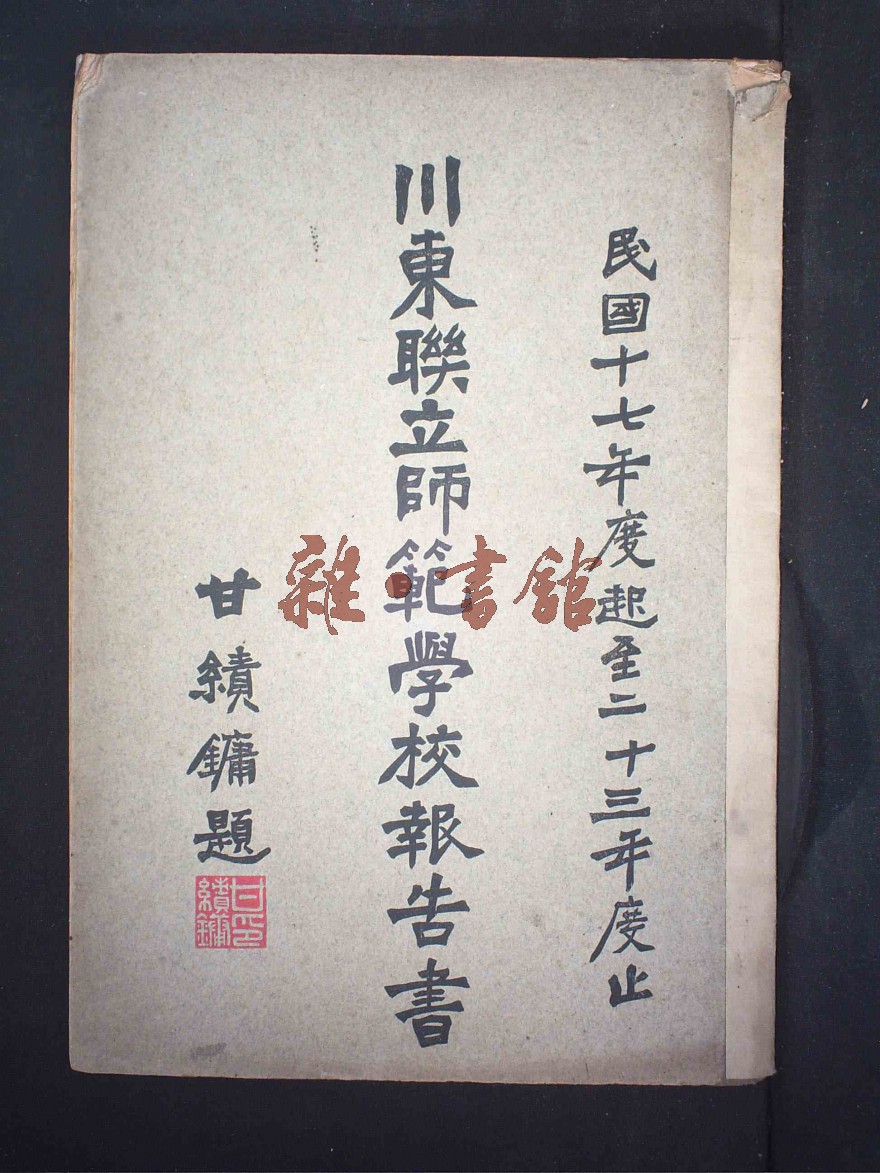 民國十七年度起至二十三年度止
川東聯立師範學校報告書
甘績鏞題
甘印績鏞
雜·書館